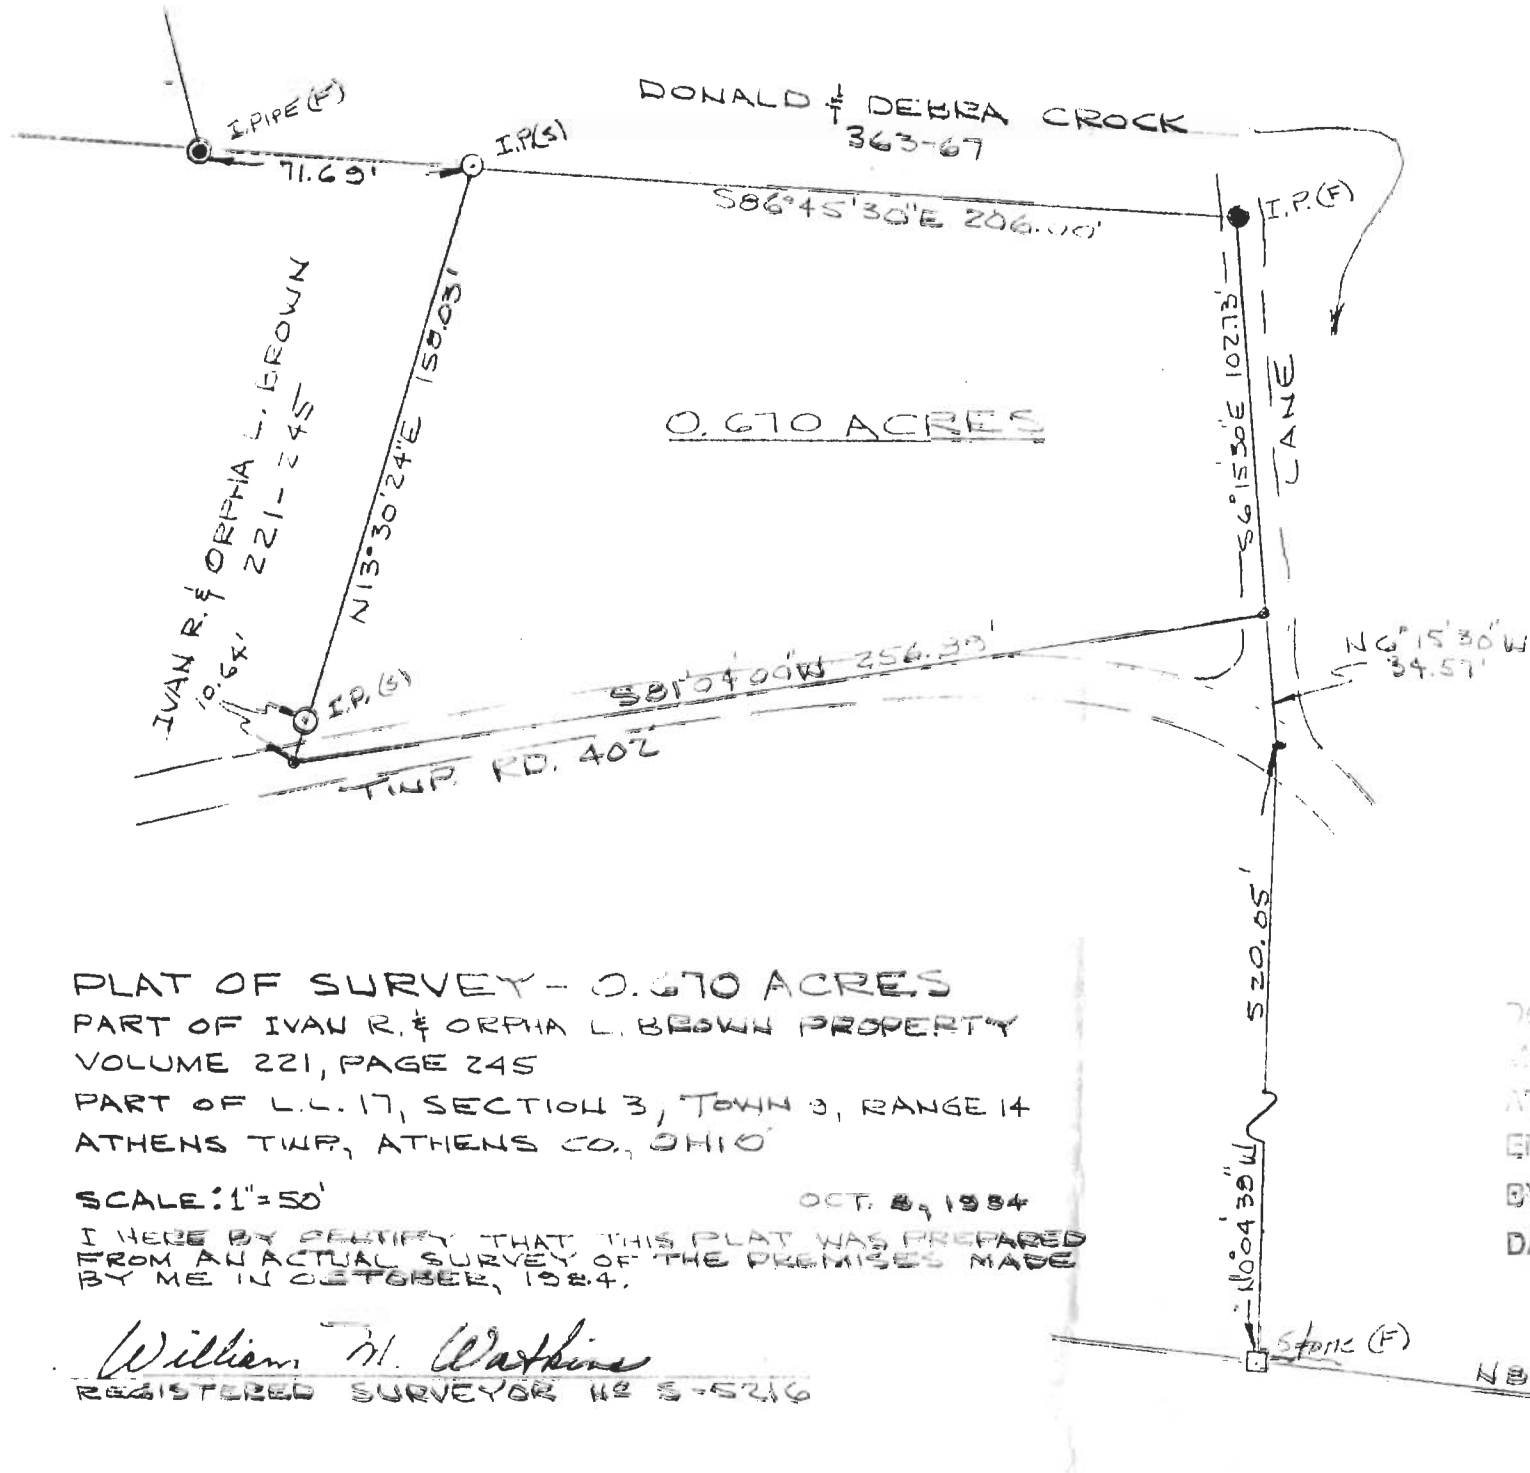 DONALD & DEBRA CROCK
363-67
I.PIPE (F)
I.P.(S)
71.69'
S86°45'30"E 206.00'
I.P.(F)
IVAN R. & ORPHA L. BROWN
221-245
N13°30'24"E 158.03'
0.670 ACRES
S6°15'30"E 102.73'
LANE
10.6±'
I.P.(S)
S81°04'00"W 256.39'
TWP. RD. 402
N6°15'30"W
34.57'
520.05'
N0°04'39"W
Stone (F)
N8
PLAT OF SURVEY - 0.670 ACRES
PART OF IVAN R. & ORPHA L. BROWN PROPERTY
VOLUME 221, PAGE 245
PART OF L.L. 17, SECTION 3, TOWN 9, RANGE 14
ATHENS TWP., ATHENS CO., OHIO
SCALE: 1"=50'
OCT. 8, 1984
I HERE BY CERTIFY THAT THIS PLAT WAS PREPARED
FROM AN ACTUAL SURVEY OF THE PREMISES MADE
BY ME IN OCTOBER, 1984.
William M. Watkins
REGISTERED SURVEYOR Nº S-5216